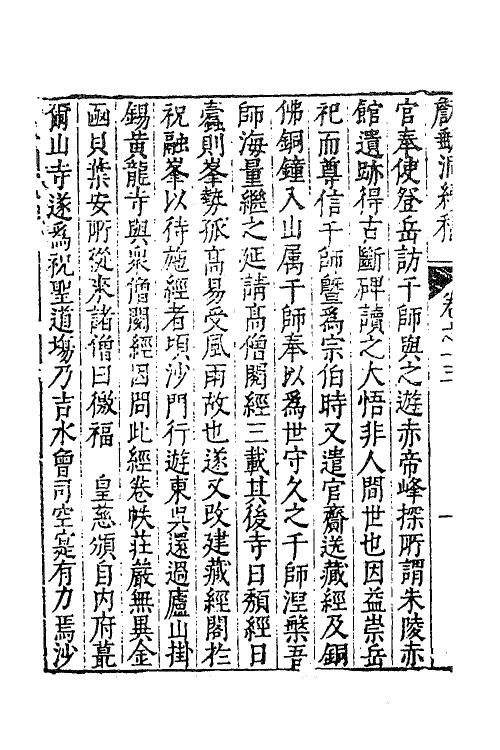 官奉使登岳訪千師與之遊赤帝峰探所謂朱陵赤
館遺跡得古斷碑讀之大悟非人間世也因益崇岳
祀而尊信千師暨為宗伯時又遣官齎送藏經及銅
佛銅鐘入山属千師奉以為世守久之千師涅槃吾
師海量繼之延請髙僧閱經三載其後寺日頹經日
蠹則峯勢孤髙易受風雨故也遂又改建藏經閣於
祝融峯以待施經者頃沙門行遊東吳還過廬山掛
錫黄龍寺與衆僧閱經因問此經卷帙莊嚴無異金
函貝葉安所從來諸僧曰徼福　皇慈頒自内府蕞
爾山寺遂為祝聖道場乃吉水曾司空寔有力焉沙